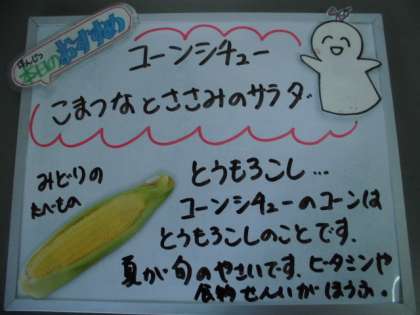 ほんじつ
本日のおすすめ
コーンシチュー
こまつなとささみのサラダ
みどりの
たべもの
とうもろこし…
コーンシチューのコーンは
とうもろこしのことです。
夏が旬のやさいです。ビタミンや
食物せんいがほうふ。